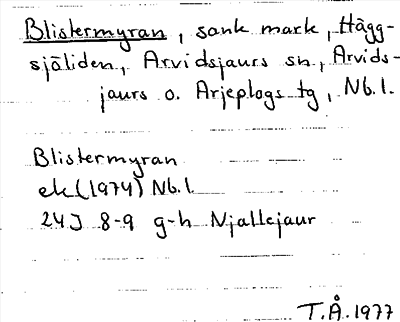 Blistermyran, sank mark, Hägg-
sjöliden, Arvidsjaurs sn, Arvids-
jaurs o. Arjeplogs tg, Nb. l.
Blistermyran
ek (1974) Nb. l.
24J 8-9 g-h Njallejaur
T.Å. 1977